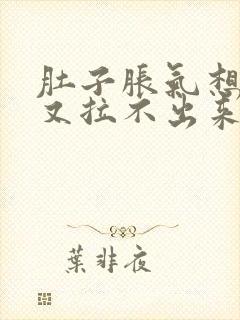 肚子脹氣想
又拉不出來
葉非夜